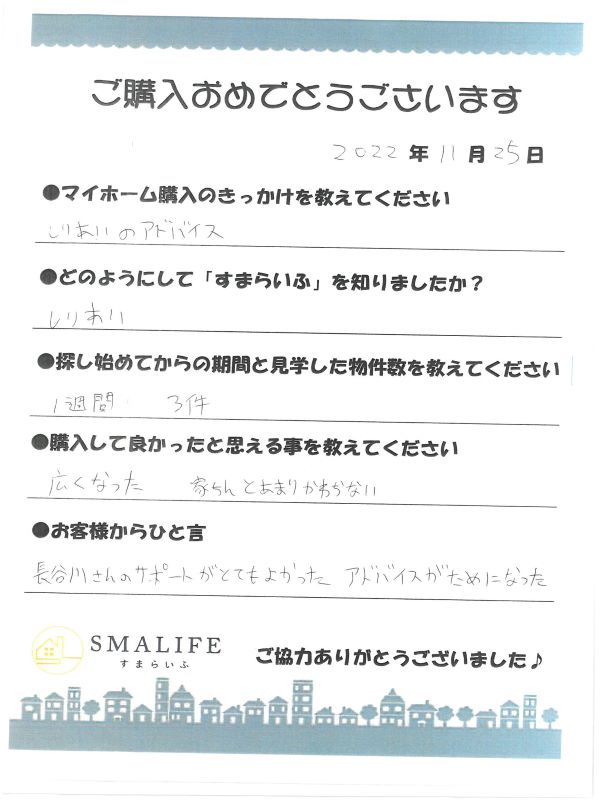 ご購入おめでとうございます
2022年11月25日
●マイホーム購入のきっかけを教えてください
しりあいのアドバイス
●どのようにして「すまらいふ」を知りましたか？
しりあい
●探し始めてからの期間と見学した物件数を教えてください
1週間 3件
●購入して良かったと思える事を教えてください
広くなった 家ちんとあまりかわらない
●お客様からひと言
長谷川さんのサポートがとてもよかった アドバイスがためになった
SMALIFE
すまらいふ
ご協力ありがとうございました♪